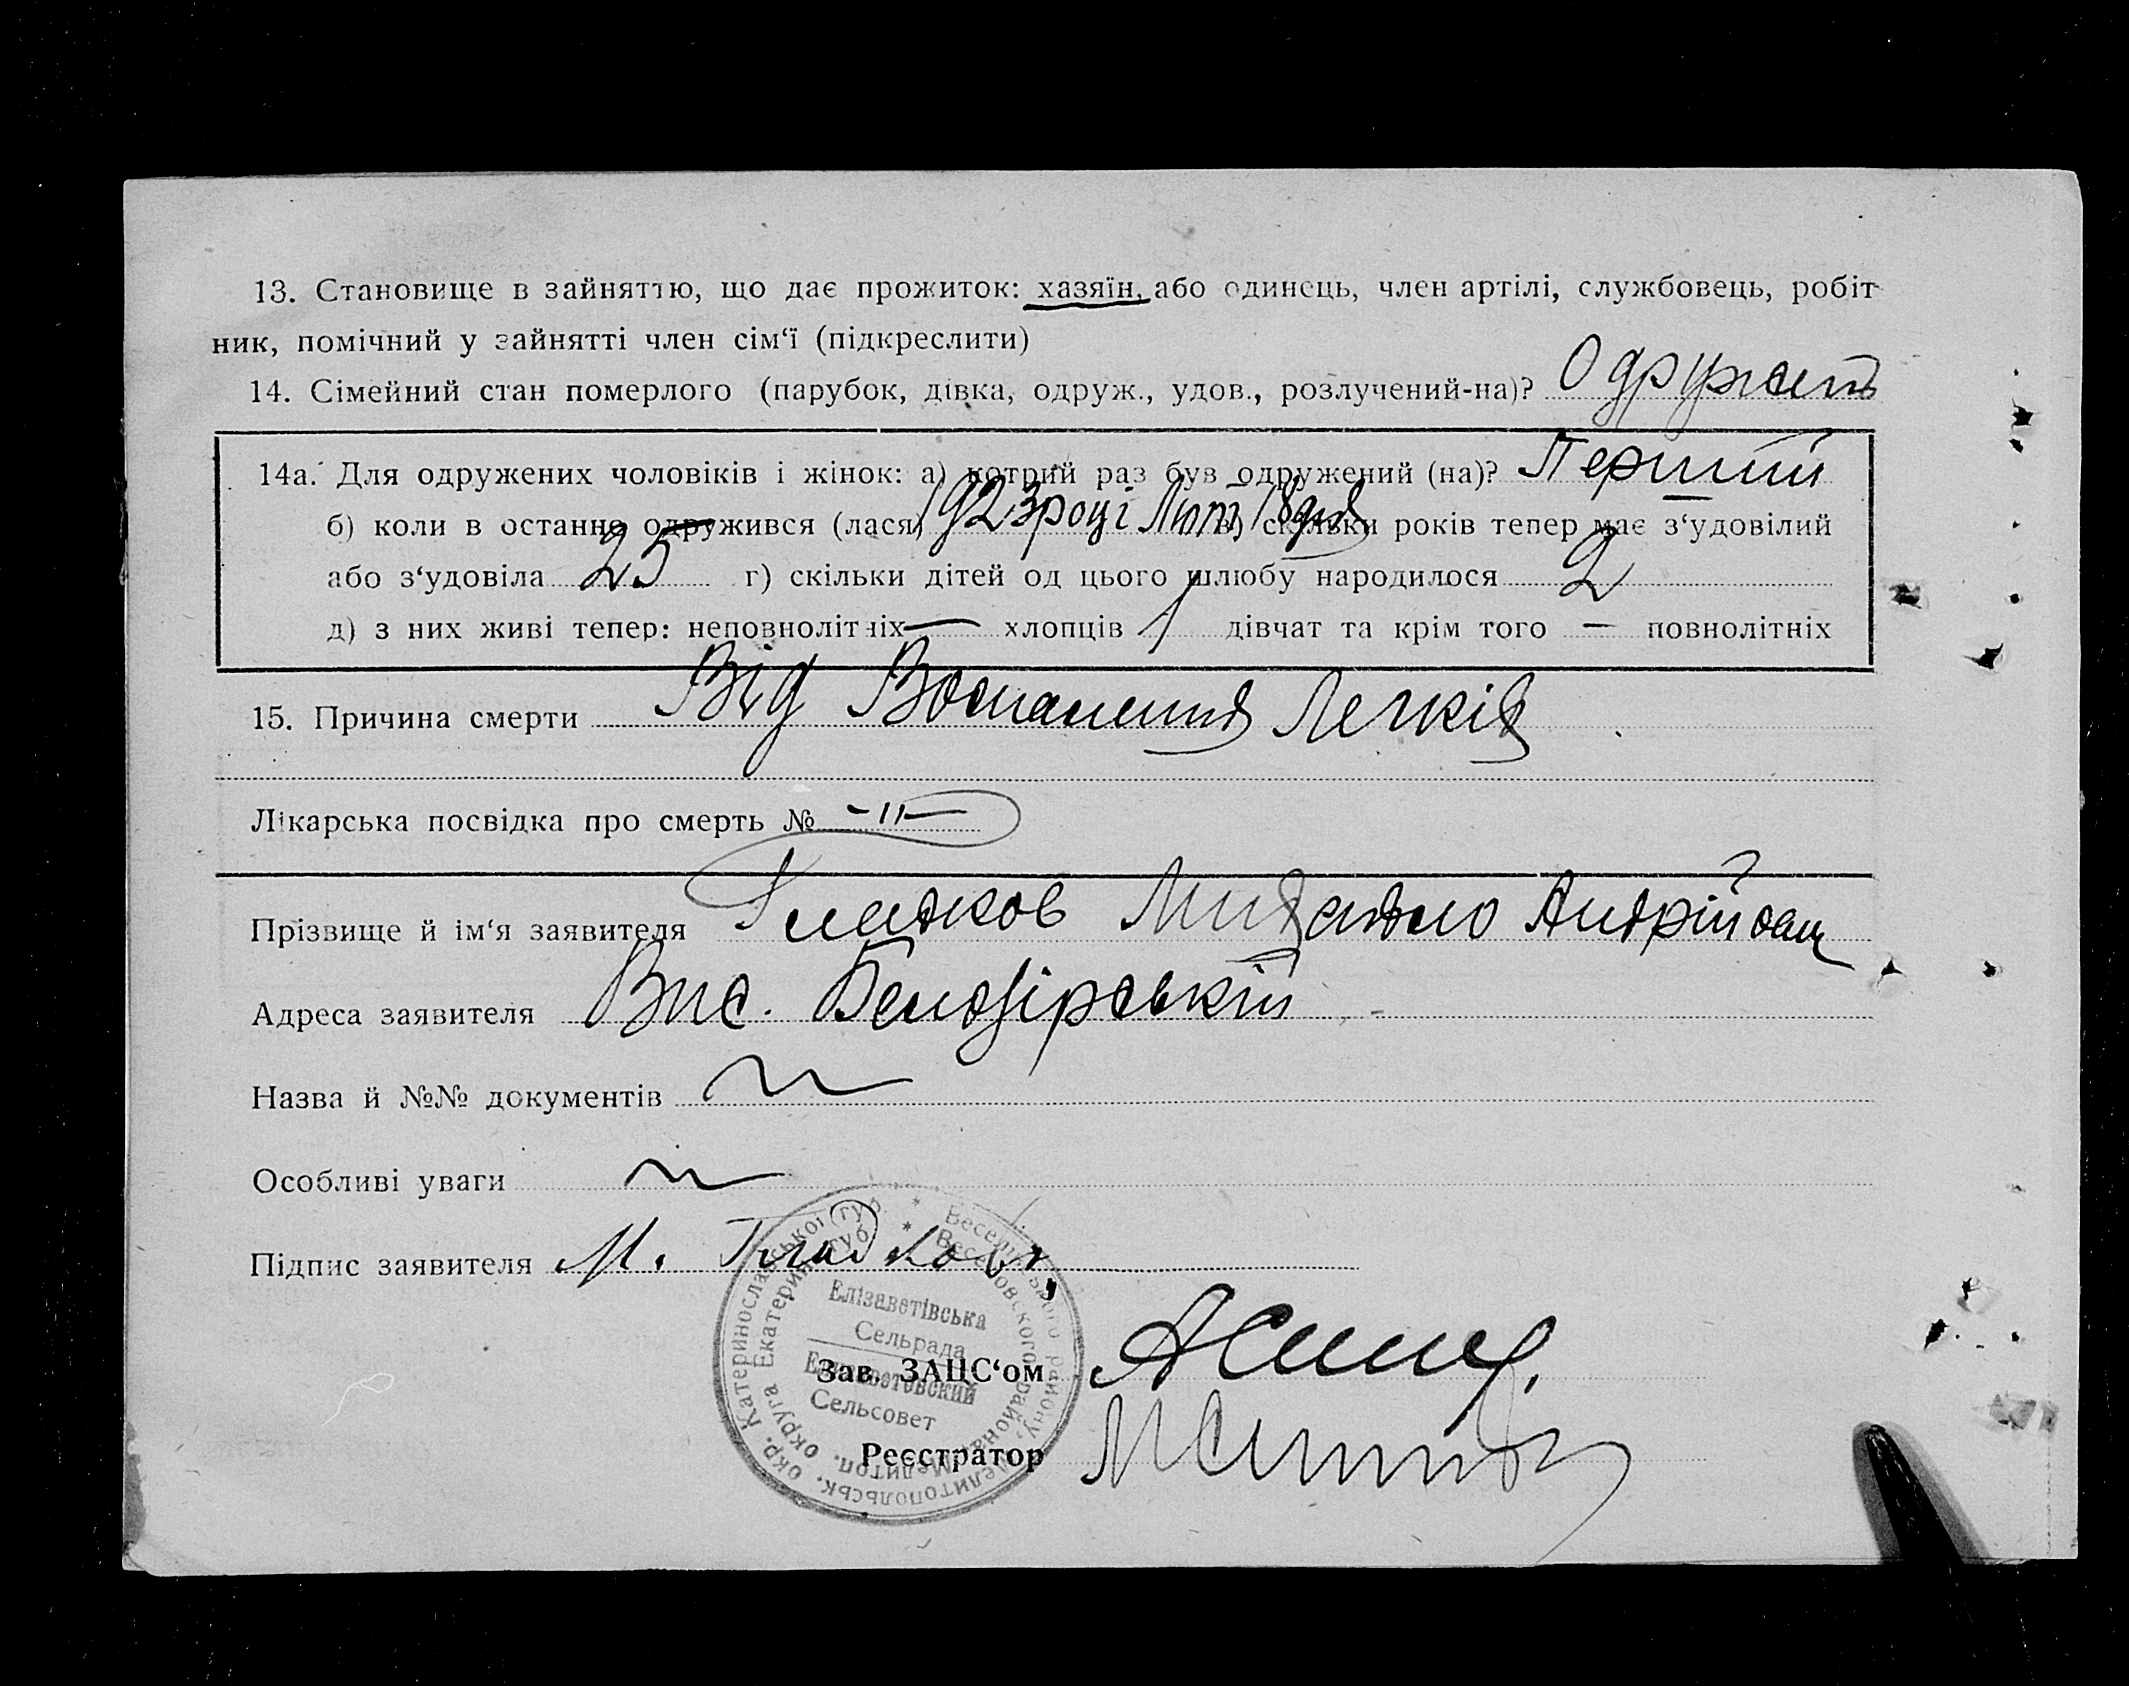 13. Становище в зайняттю, що дає прожиток: хазяїн, або одинець, член артілі, службовець, робіт
ник, помічний у зайнятті член сім‘ї (підкреслити)
14. Сімейний стан померлого (парубок, дівка, одруж., удов., розлучений-на)?
14а. Для одружених чоловіків і жінок: а) котрий раз був одружений (на)? Перший
б) коли в останнє одружився (лася) 1923 році Лют 18 дня в) скільки років тепер має з‘удовілий
або з‘удовіла 25 г) скільки дітей од цього шлюбу народилося 2
д) з них живі тепер: неповнолітніх — хлопців 1 дівчат та крім того — повнолітніх
15. Причина смерти Від Воспаления Легків
Лікарська посвідка про смерть № -"-
Прізвище й ім‘я заявителя Гладков Михайло
Адреса заявителя Вис. Белозірській
Назва й №№ документів
Особливі уваги
Підпис заявителя М. Гладков
Катеринославської губ. * Веселівського району, Мелитопольськ. окр.
Екатерин. губ. * Веселовского района Мелитоп. округа
Елізаветівська
Сельрада
Елизаветовский
Сельсовет
Зав. ЗАЦС‘ом
Реєстратор